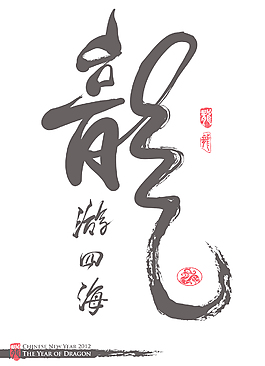 龍
游四海
CHINESE NEW YEAR 2012
THE YEAR OF DRAGON